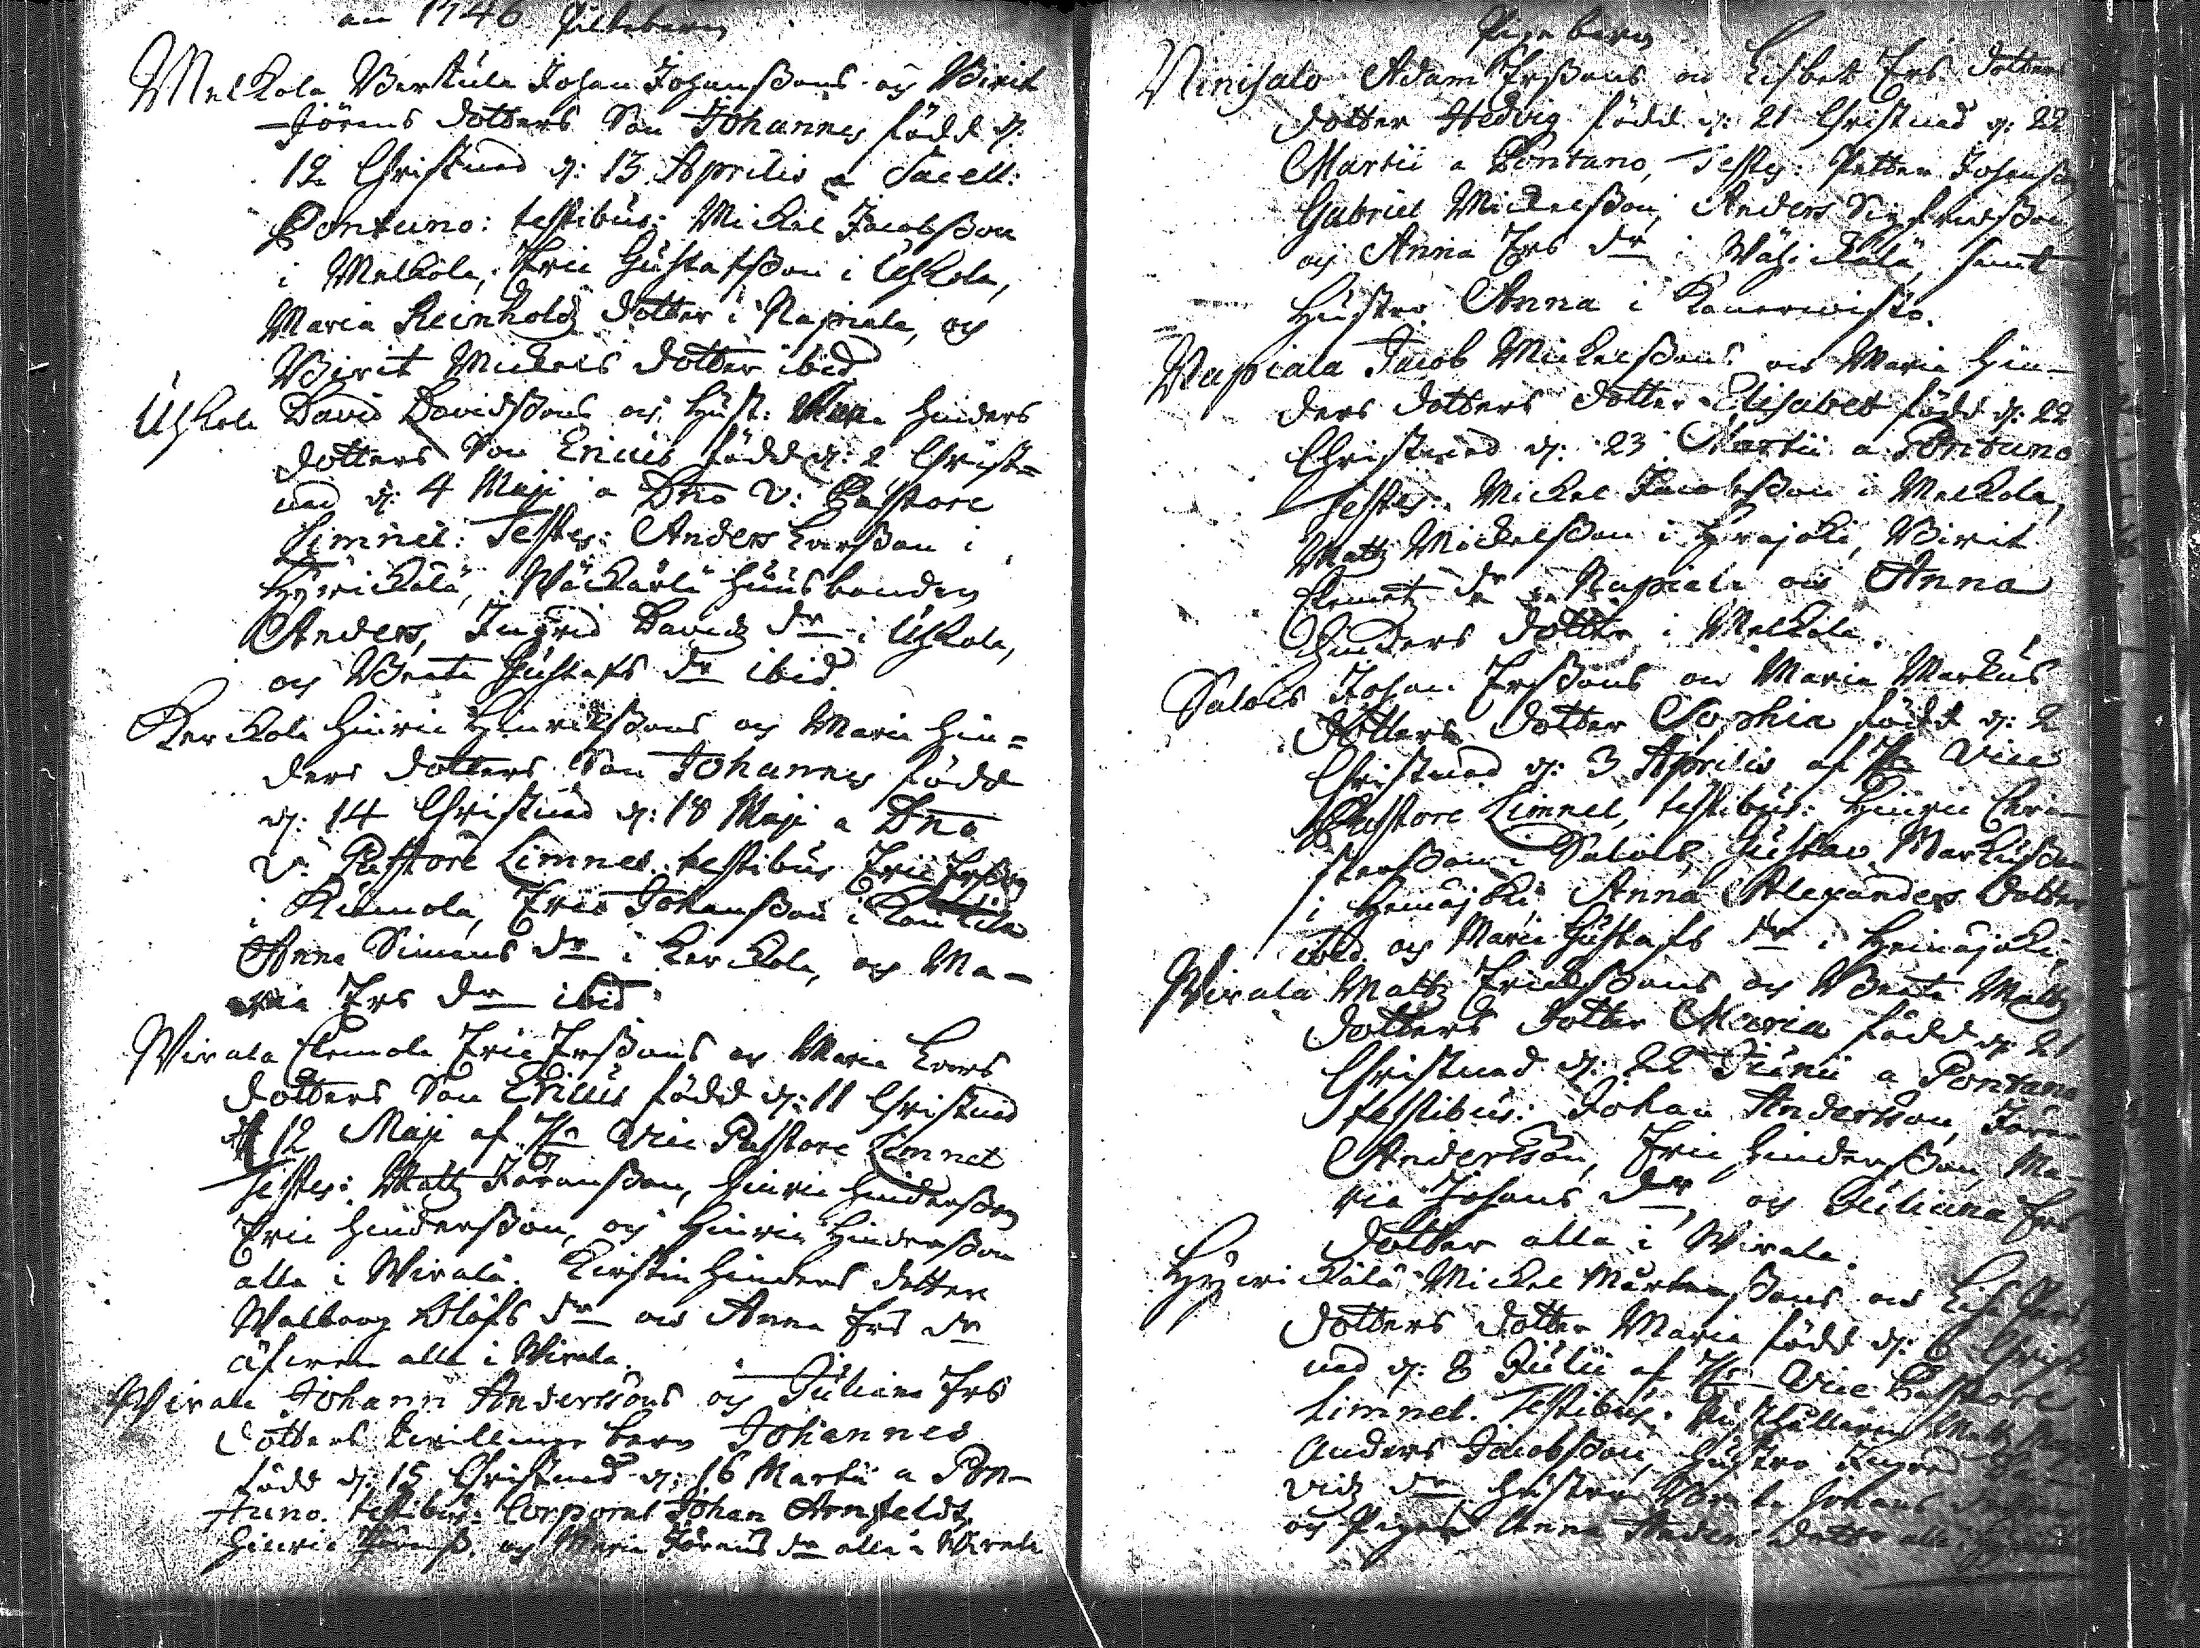 an 1746 Pilteberg
Melkola Bertula Johan Johanssons och Birit
Jörens dotters Son Johannes född d:
12 Christnad d: 13 Aprilis a Sacell:
Pontano: testibus: Mickel Jacobsson
i Melkola, Eric Gustafsson i Uskola,
Maria Reinholdz dotter i Napiala, och
Birit Mickels dotter ibid
Uskola David Davidssons och Hust: Maria Hinders
dotters Son Ericus född d: 2 Christ=
nad d: 4 Maji a Dno V: Pastore
Limnel: Testes: Anders Larsson i
Hyrickälä, Wäckärlä husbonden
Anders, Ingrid Davidz dr i Uskola,
och Beata Gustafs dr ibid
Kerckola Hinric Hinricssons och Maria Hin=
ders dotters Son Johannes född
d: 14 Christnad d: 18 Maji a Dno
V: Pastore Limnel. testibus Eric Ersson
i Kumola, Eric Johansson i
Anna Simons dr i Kerckola, och Ma-
ria Ers dr ibid
Wirala Clemola Eric Erssons och Maria Lars
dotters Son Ericus född d: 11 Christnad
d 12 Maji af Hr Vice Pastore Limnel
Testes: Matz Jöransson, Hinric Hindersson
Eric Hindersson, och Hinric Hindersson
alla i Wirala. Kirstin Hinders dotter
Walborg Olofs dr och Anna Ers dr
äfwen alla i Wirala.
Wirala Johann Anderssons och Juliana Ers
dotters twillinge barn Johannes
född d: 15 Christnad d: 16 Martii a Pon-
tano. testibus: Corporal Johan Arnfeldt,
Hinric Jöranss. och Maria Jörans dr alla i Wirala
Pigebarn
Ninisalo Adam Erssons och Lisbet Ers dotters
dotter Hedvig född d: 21 Christnad d: 22
Martii a Pontano, Testes: Petter Johansson
Gabriel Mickelsson, Anders Sigfredsson,
och Anna Ers dr i Wähickälä, samt
Hustru Anna i Kanerwisto.
Napiala Jacob Mickelssons och Maria Hin-
ders dotters dotter Elisabet född d: 22
Christnad d: 23 Martii a Pontano
Testes: Mickel Jacobsson i Melkola,
Matz Mickelsson i Heinäjoki, Birit
Clemetz dr i Napiala och Anna
Hinders dotter i Melkola.
Salois Johan Erssons och Maria Markus
dotters dotter Sophia född d: 2
Christnad d: 3 Aprilis af Hr Vice
Pastore Limnel, testibus: Hinric Chri-
stersson i Salois, Gustav Markusson
i Heinäjoki Anna Alexanders dotter
ibid. och Maria Gustafs dr i Heinäjoki,
Wirala Matz Ericssons och Beata Matz
dotters dotter Maria född d: 21
Christnad d: 22 Junii a Pontano
testibus: Johan Andersson, Jöran
Andersson, Eric Hindersson, Ma-
ria Johans dr, och Juliana Ers
dotter alla i Wirala.
Hyrickälä Mickel Mårtenssons och Lisa
dotters dotter Maria född d: 6 Christ
nad d: 8 Julii af Hr Vice Pastore
Limnel. Testibus: Matz
Anders Jacobsson, Hustru Ingrid Da-
vidz dr Hustru Beata Johans dotter
och Pigan Anna Anders dotter alla i